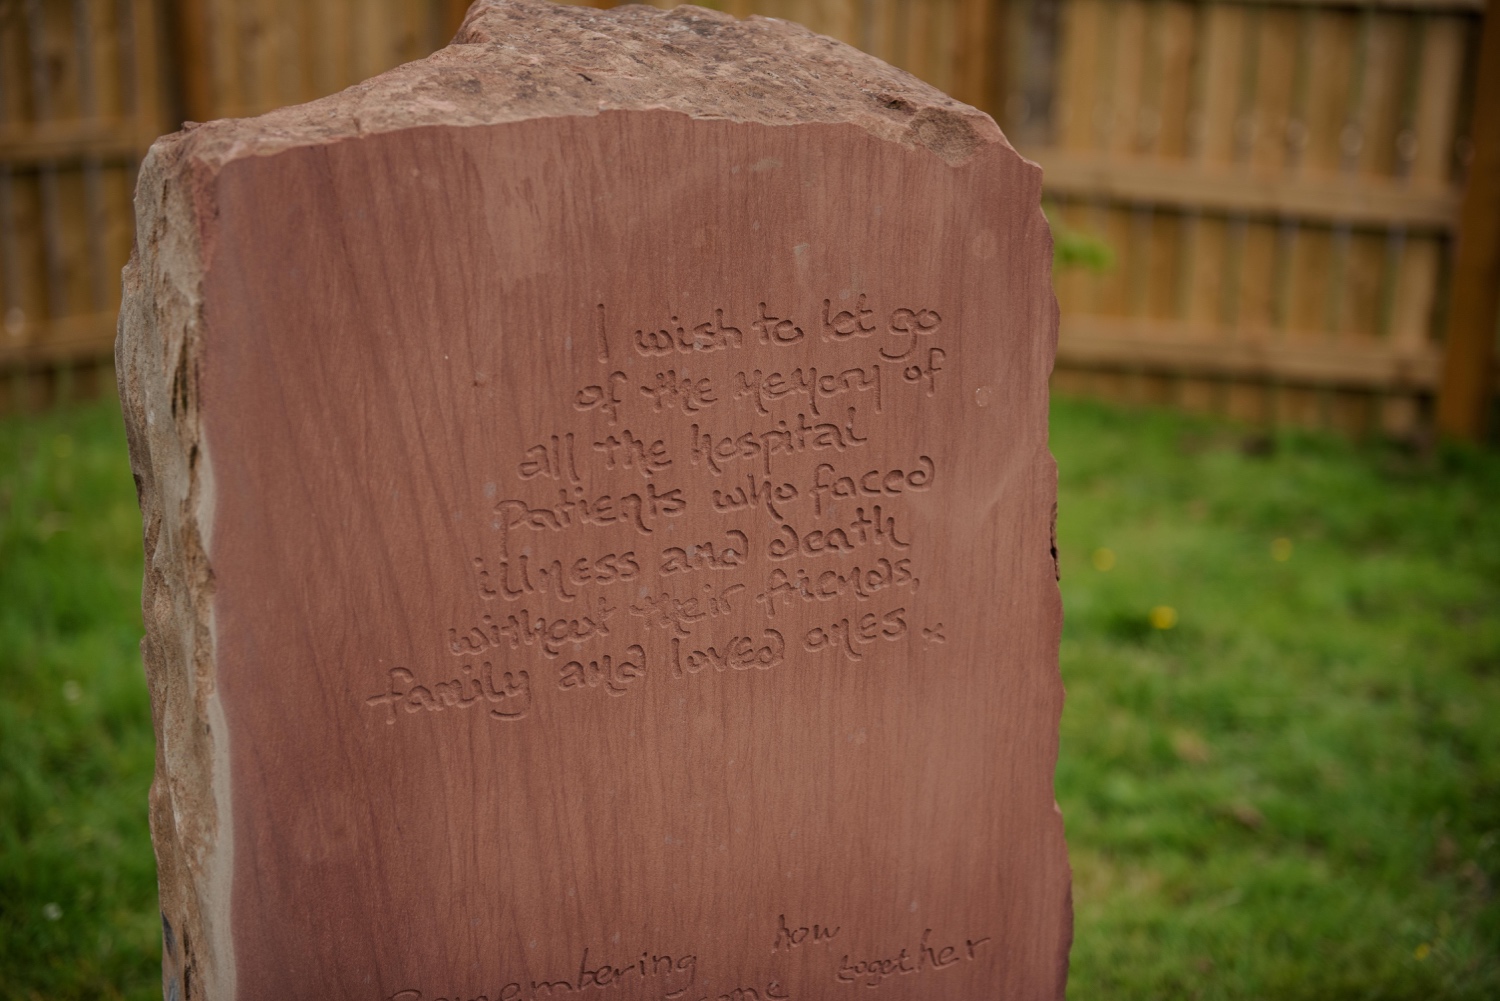 I wish to let go
of the memory of
all the hospital
patients who faced
illness and death
without their friends,
family and loved ones.
how
Remembering
together